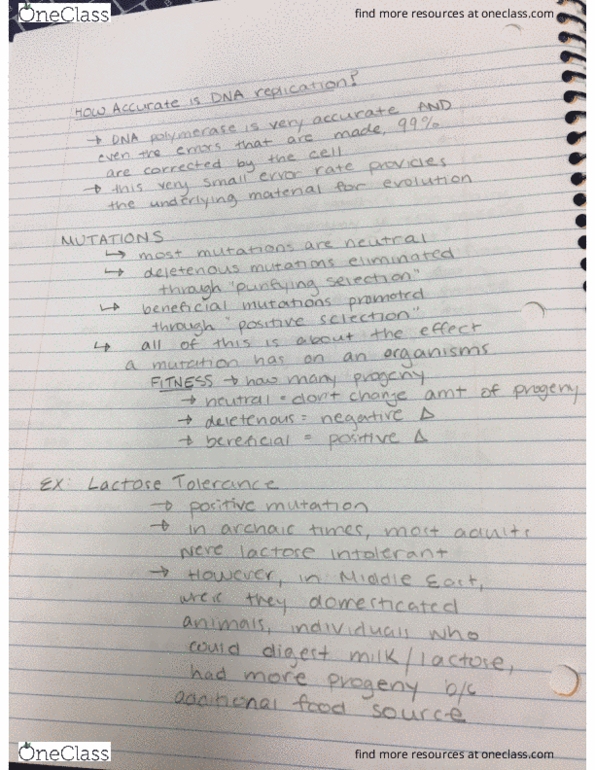 OneClass
find more resources at oneclass.com
HOW ACCURATE IS DNA replication?
→ DNA polymerase is very accurate AND
even the errors that are made, 99%
are corrected by the cell
→ this very small error rate provides
the underlying material for evolution
MUTATIONS
↳ most mutations are neutral
↳ deletenous mutations eliminated
through "purifying selection"
↳ beneficial mutations promoted
through "positive selection"
↳ all of this is about the effect
a mutation has on an organisms
FITNESS → how many progeny
→ neutral = don't change amt of progeny
→ deletenous = negative Δ
→ beneficial = positive Δ
EX: Lactose Tolerance
→ positive mutation
→ in archaic times, most adults
were lactose intolerant
→ However, in Middle East,
were they domesticated
animals, individuals who
could digest milk/lactose,
had more progeny b/c
additional food source
OneClass
find more resources at oneclass.com